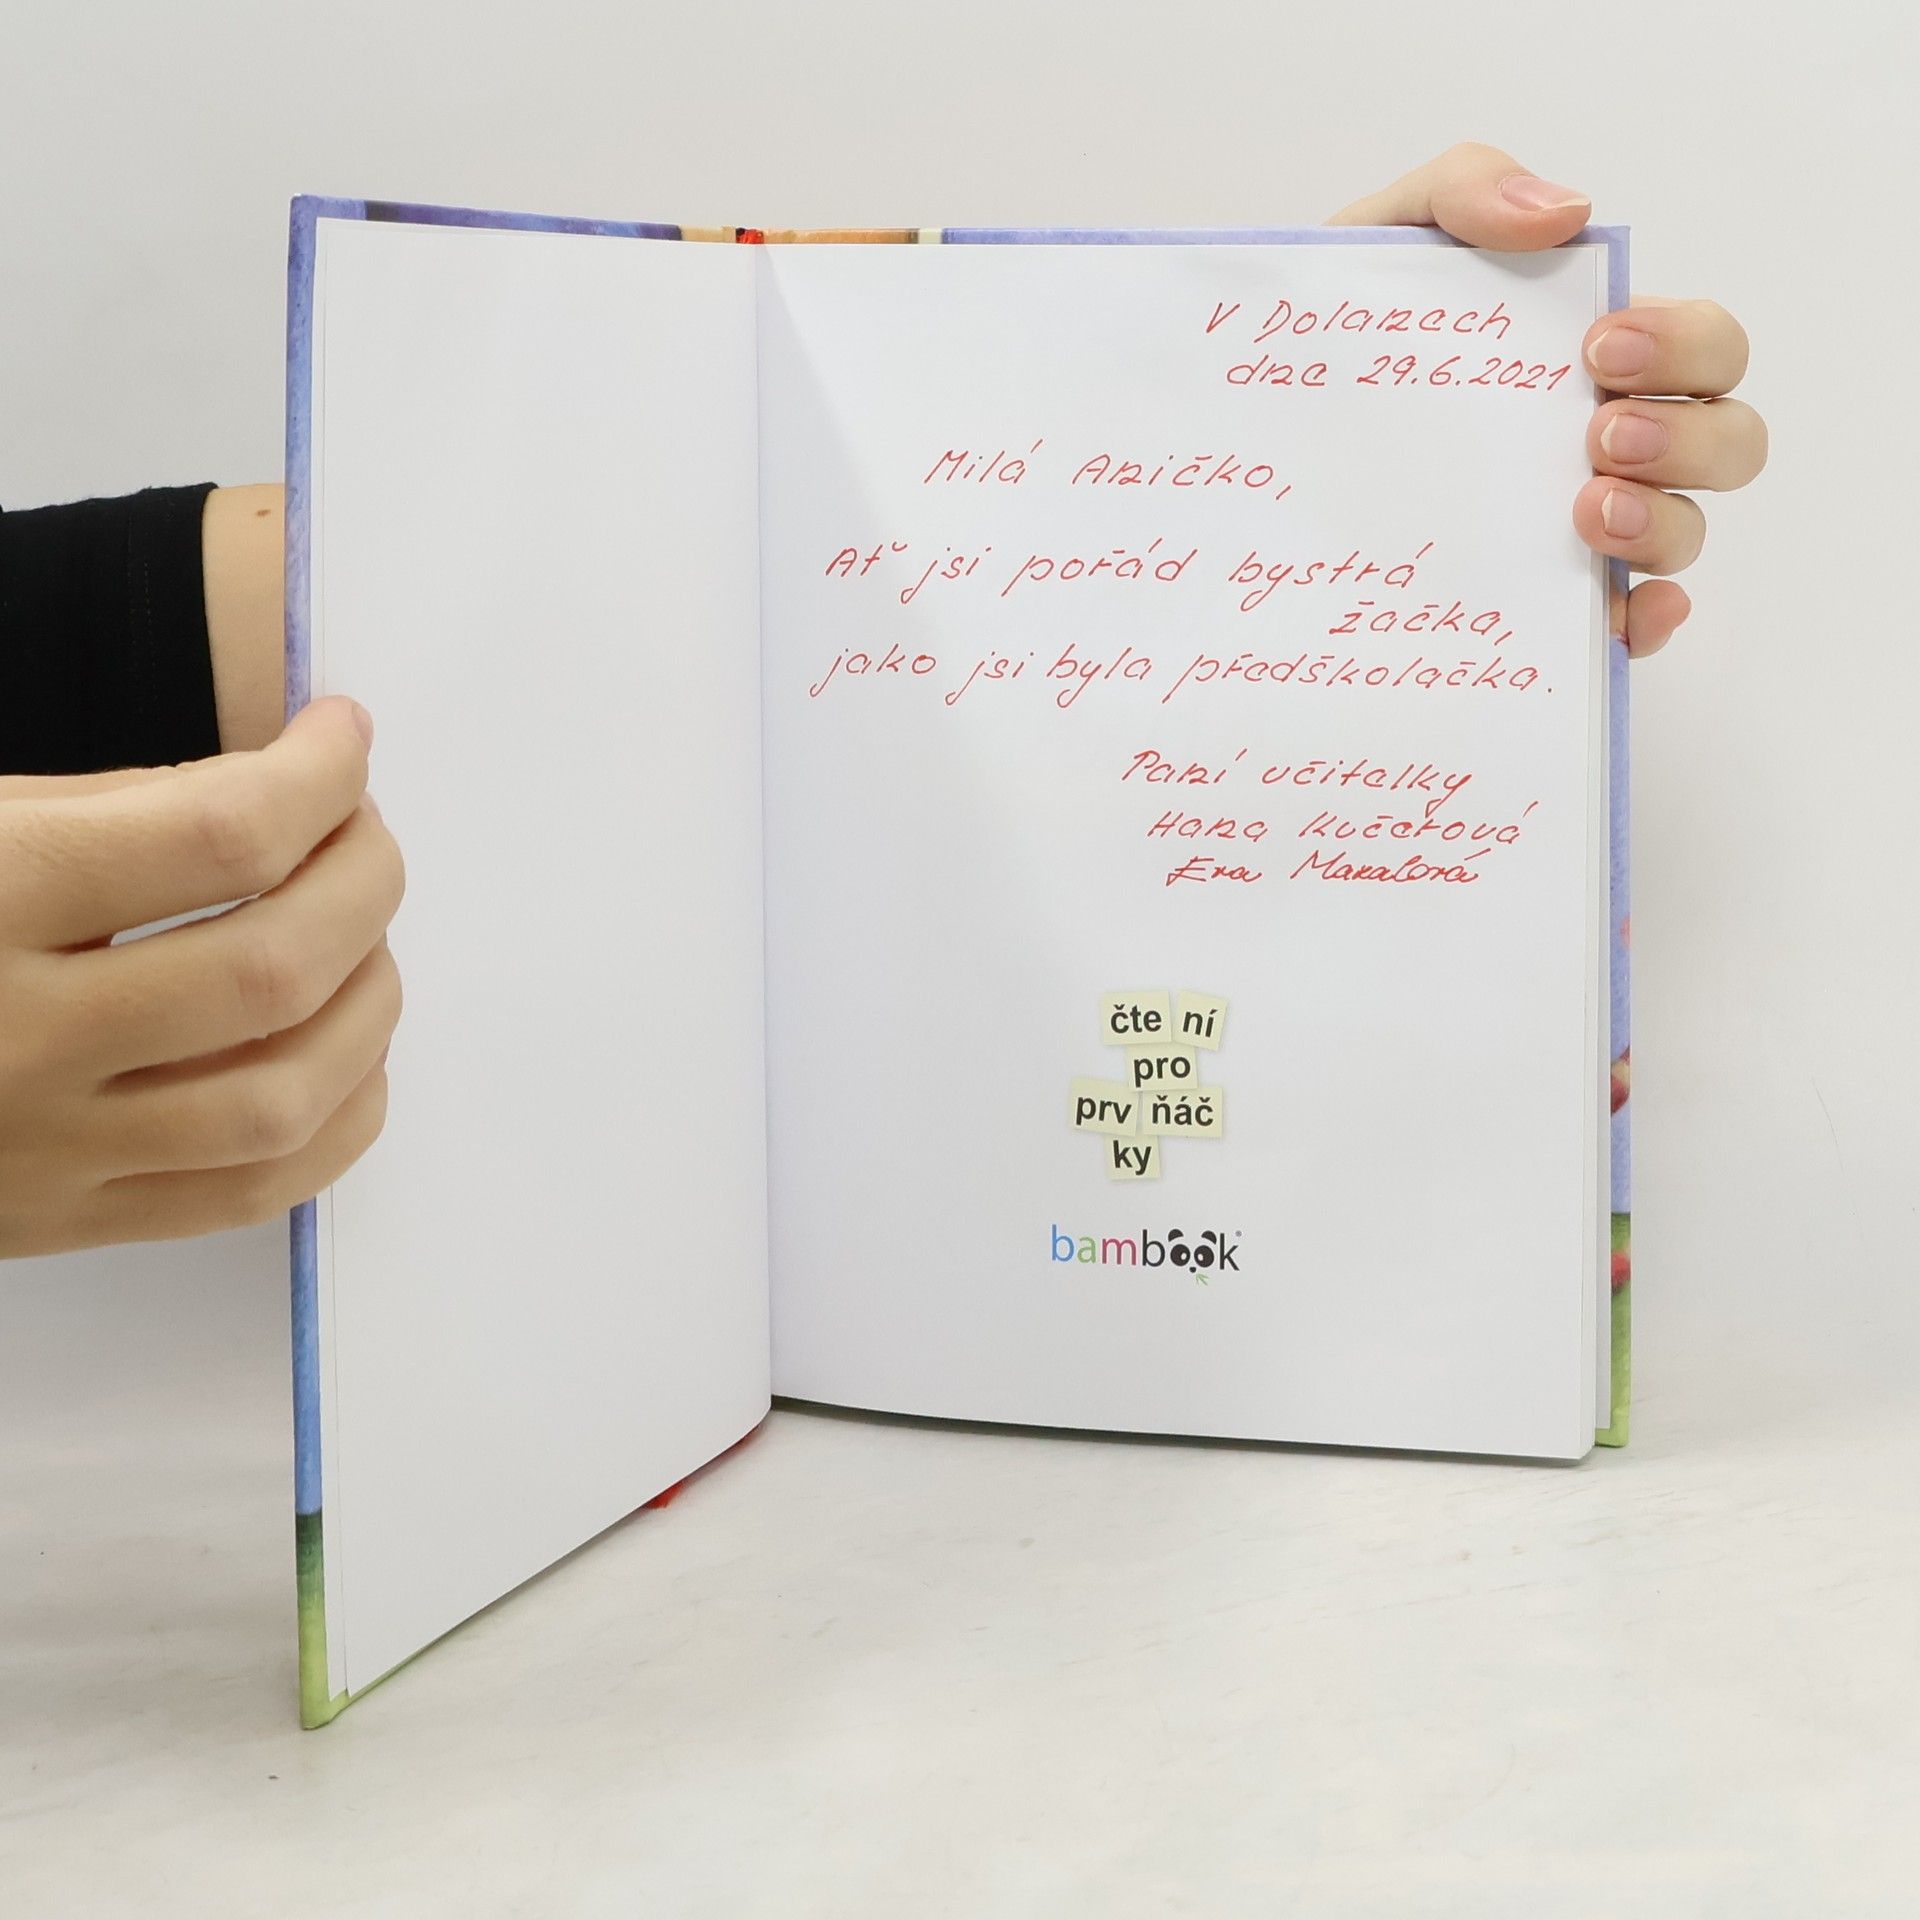 V Dolanech
dne 29.6.2021
Milá Aničko,
Ať jsi pořád bystrá
žačka,
jako jsi byla předškolačka.
Paní učitelky
Hana Kučerová
Eva
čte ní
pro
prv ňáč
ky
bambook